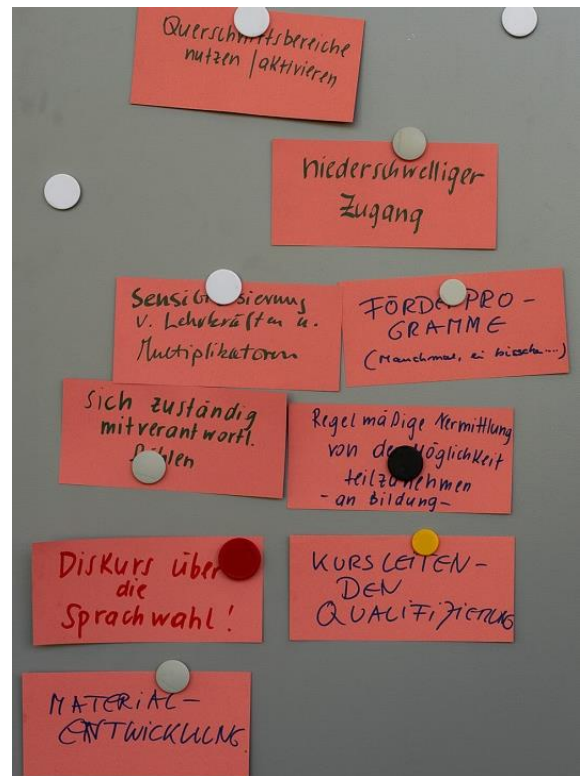 Querschnittsbereiche
nutzen / aktivieren
niederschwelliger
Zugang
Sensibilisierung
v. Lehrkräften u.
Multiplikatoren
FÖRDERPRO-
GRAMME
(Manchmal, ei bissche....)
Sich zuständig
mitverantwortl.
fühlen
Regelmäßige Vermittlung
von der Möglichkeit
teilzunehmen
- an Bildung -
Diskurs über
die
Sprachwahl!
KURSLEITEN-
DEN
QUALIFIZIERUNG
MATERIAL-
ENTWICKLUNG